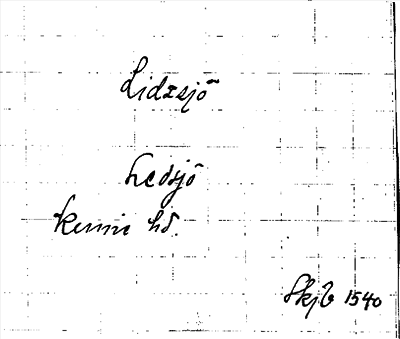 Lidzsjö
Ledsjö
Kinne hd.
Skjb 1540